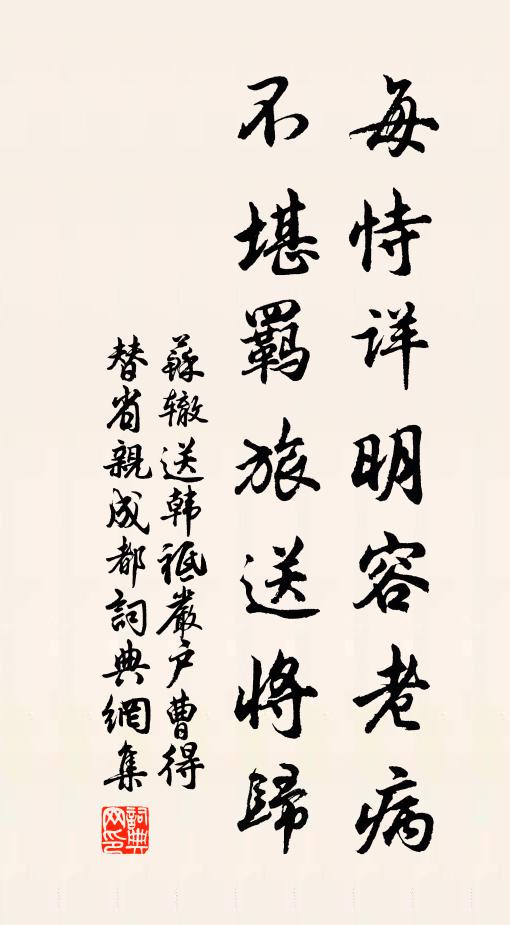 每恃详明容老病
不堪羈旅送將歸
蘇辙送韩祗嚴户曹得
替省親成都詞典網集
詞典网印